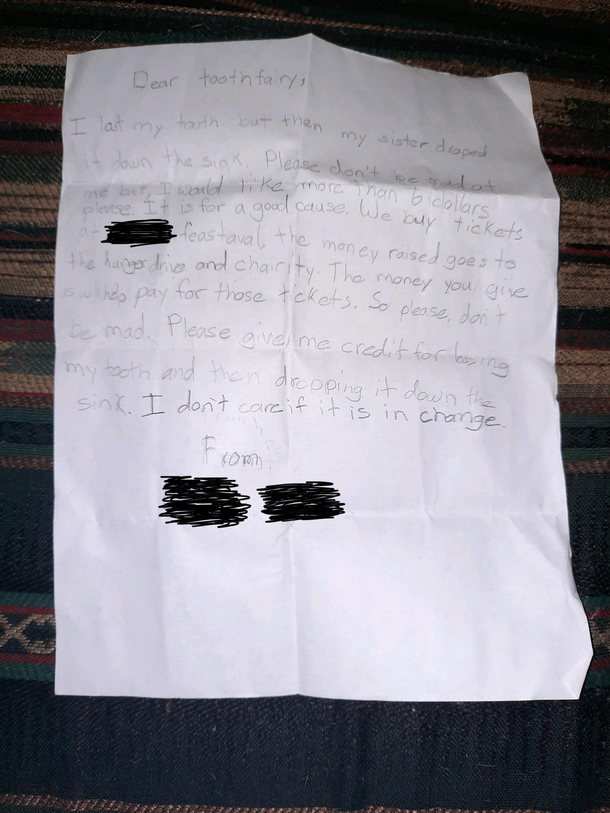 Dear toothfairy,
I lost my tooth but then my sister droped
it down the sink. Please don't be mad at
me but, I would like more than 6 dollars
please. It is for a good cause. We buy tickets
at feastaval, the money raised goes to
the hunger drive and chairity. The money you give
will help pay for those tickets. So please, don't
be mad. Please give me credit for losing
my tooth and then dropping it down the
sink. I don't care if it is in change.
From